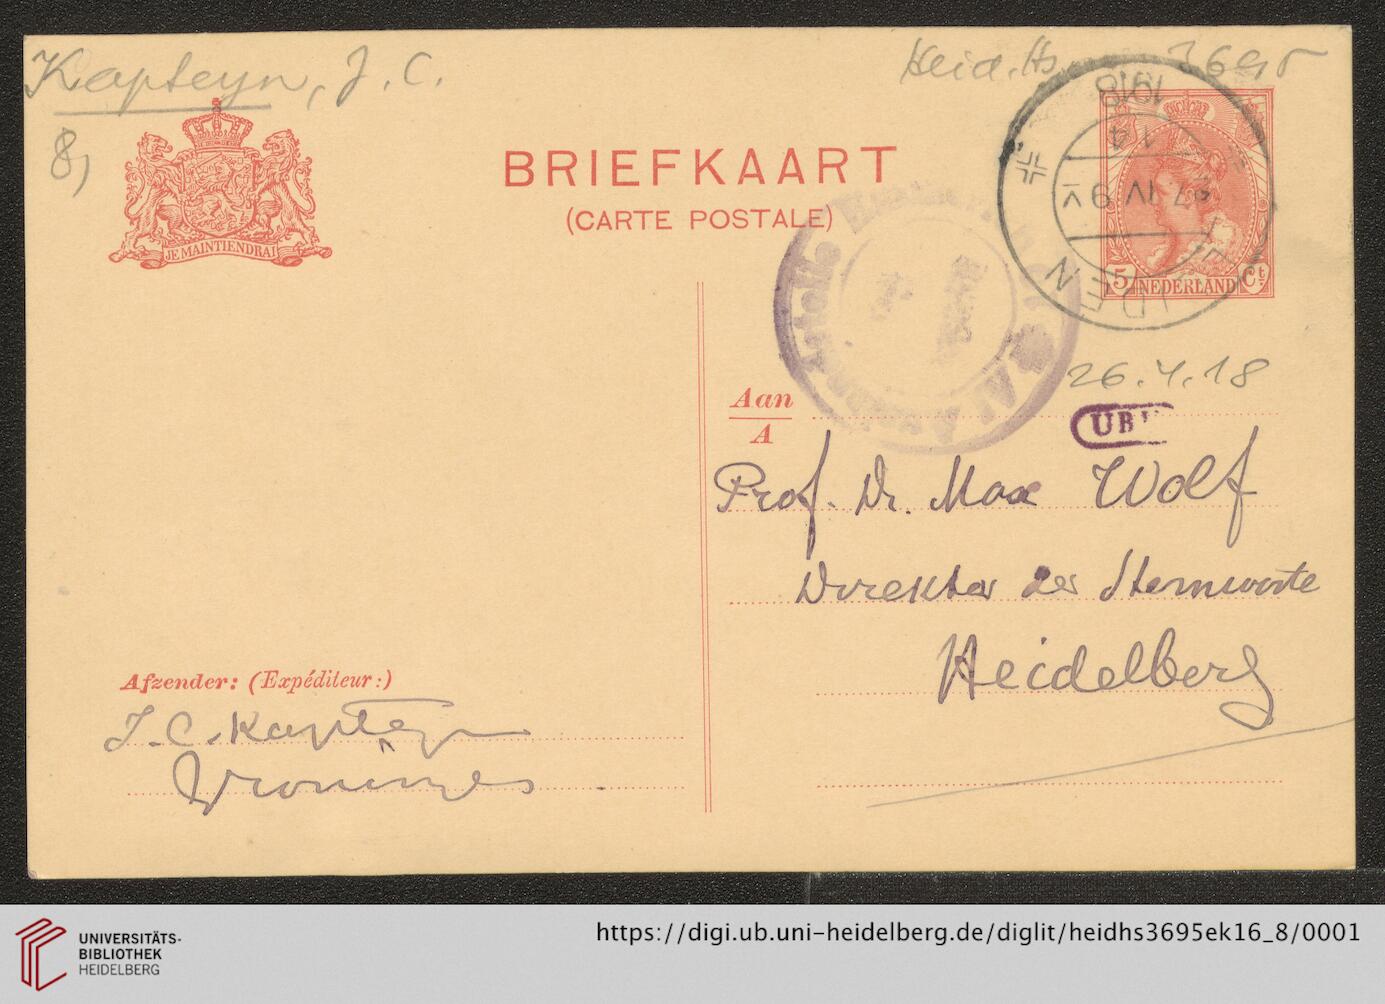 Kapteyn, J. C.
Heid. Hs. 3695
8,
JE MAINTIENDRAI
BRIEFKAART
(CARTE POSTALE)
1918
5 NEDERLAND Ct
26.4.18
Aan
A
UB
Prof. Dr. Max Wolf
Direktor der Sternwarte
Heidelberg
Afzender: (Expéditeur:)
J. C. Kapteyn
Groningen
UNIVERSITÄTS-
BIBLIOTHEK
HEIDELBERG
https://digi.ub.uni-heidelberg.de/diglit/heidhs3695ek16_8/0001